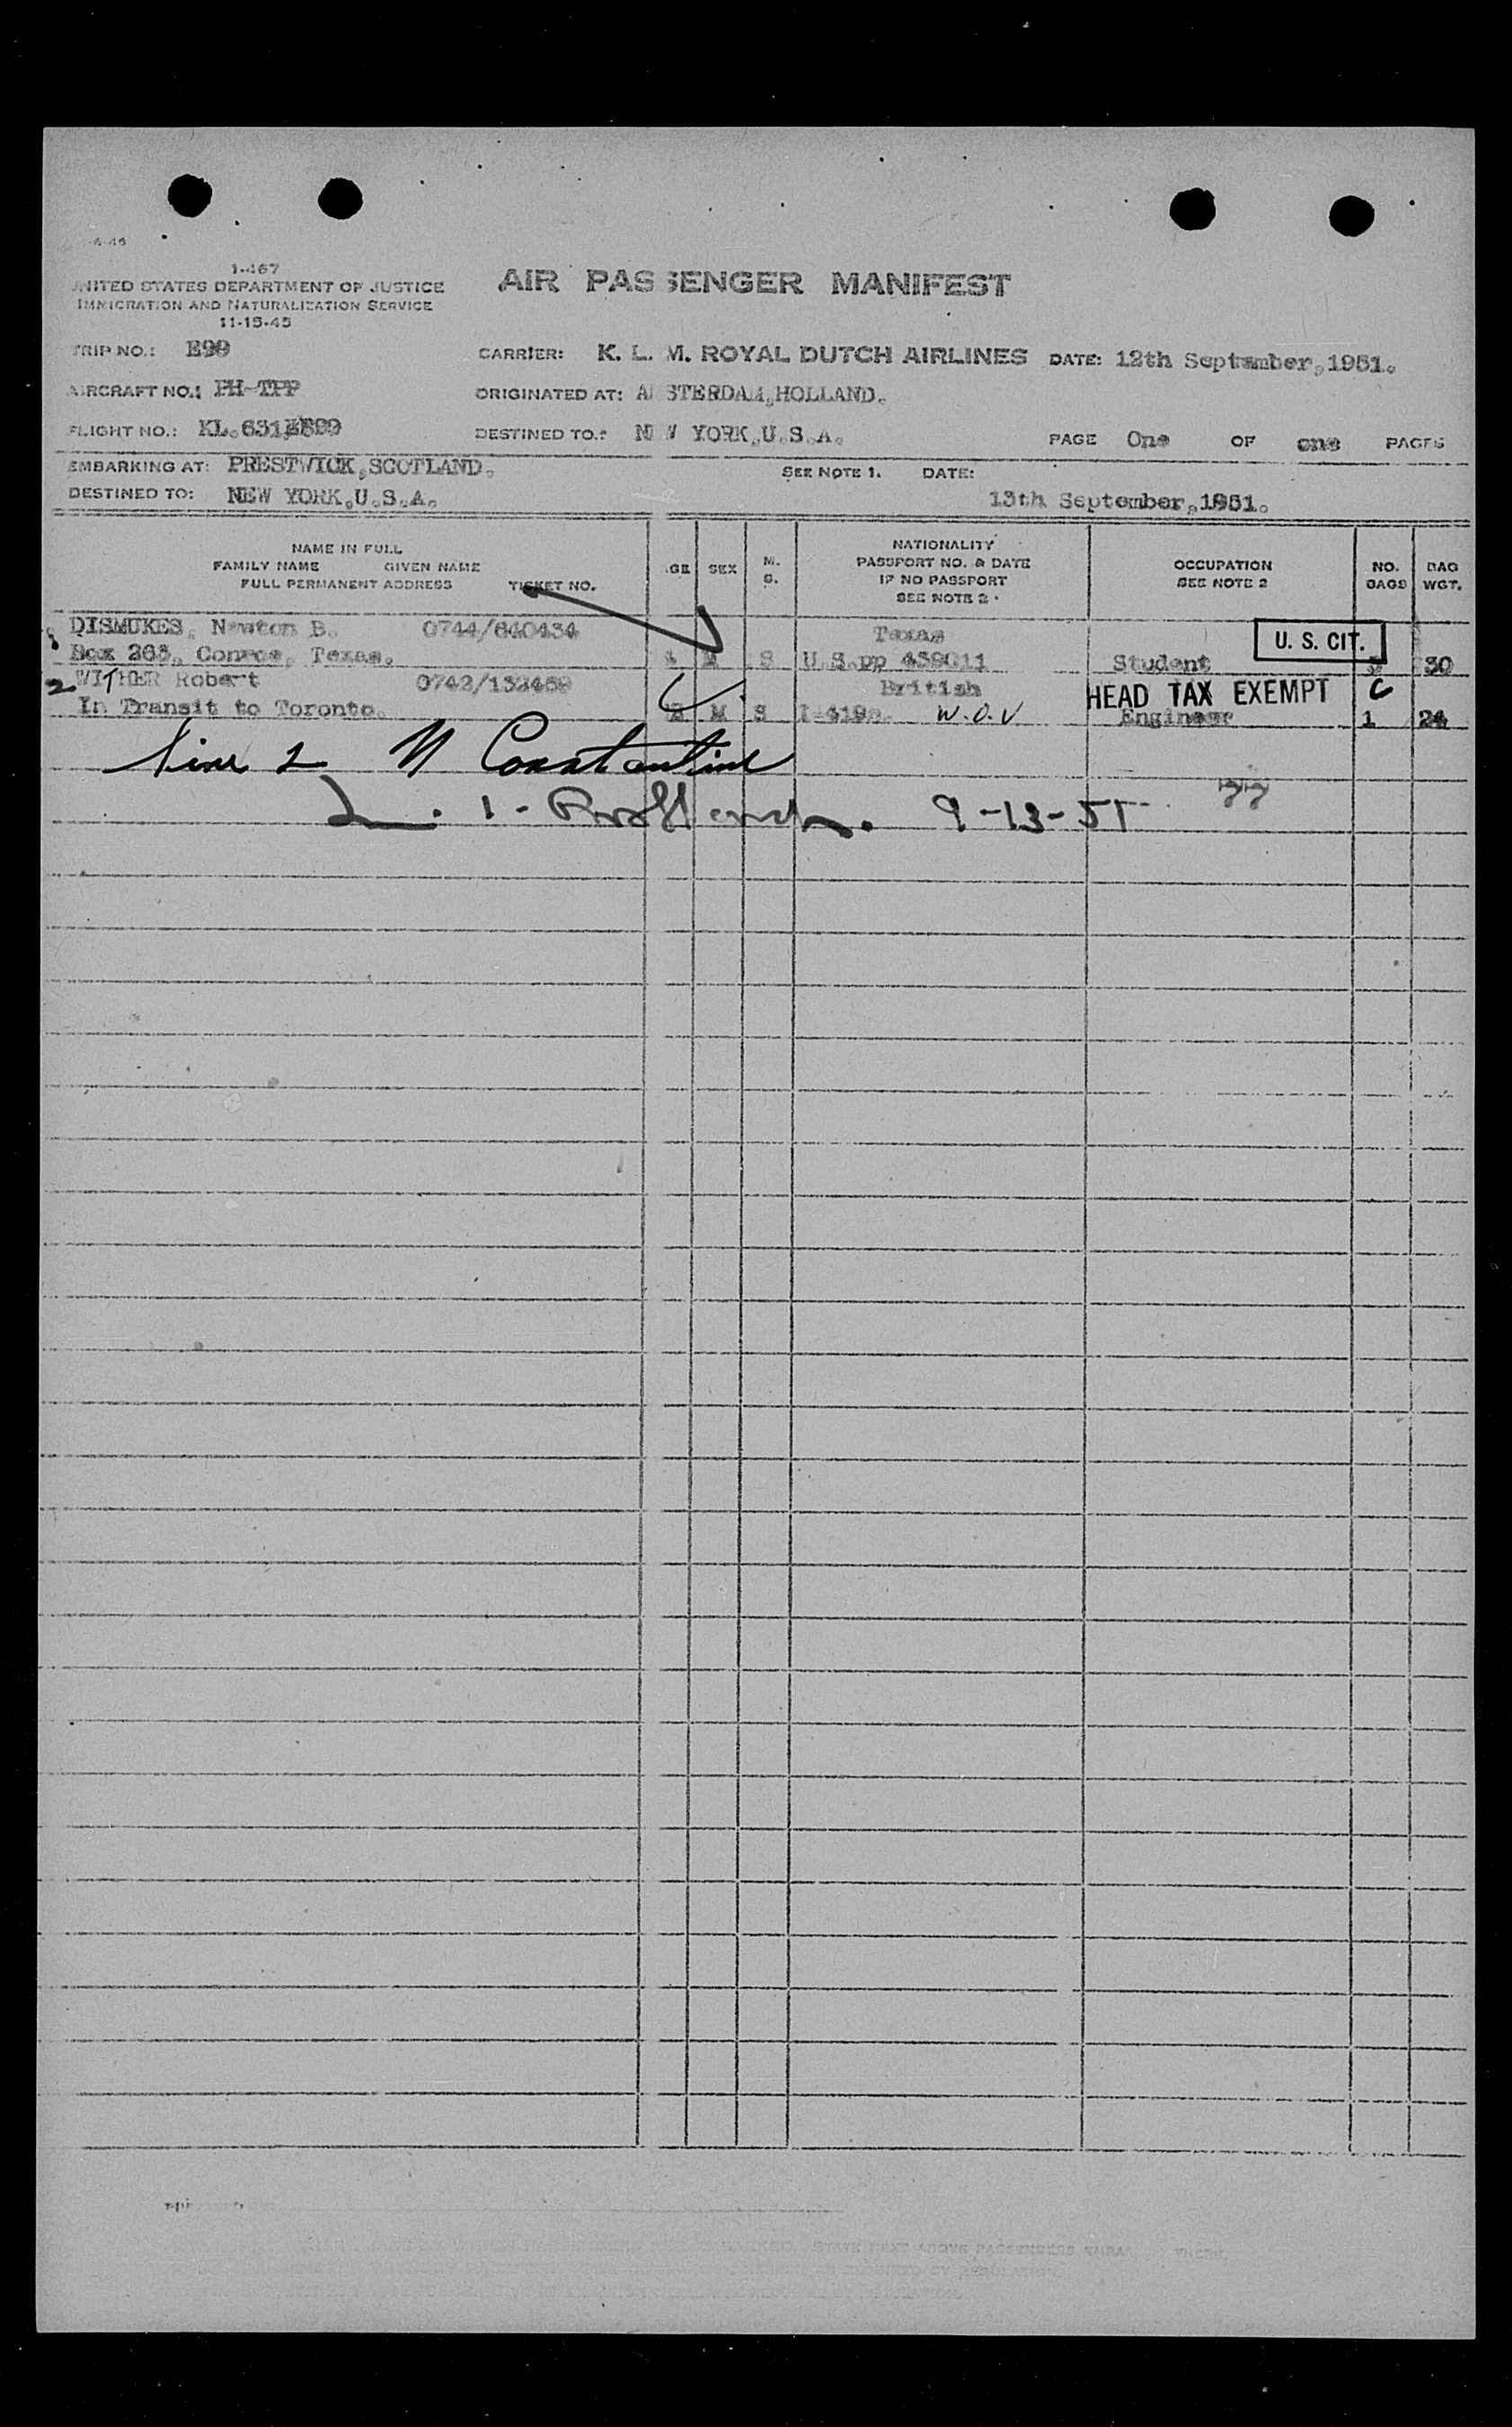 1-467
UNITED STATES DEPARTMENT OF JUSTICE
IMMIGRATION AND NATURALIZATION SERVICE
11-15-45
AIR PASSENGER MANIFEST
TRIP NO.: E99
CARRIER: K. L. M. ROYAL DUTCH AIRLINES DATE: 12th September,1951.
AIRCRAFT NO.: PH-TPP
ORIGINATED AT: AMSTERDAM,HOLLAND.
FLIGHT NO.: KL.631/E99
DESTINED TO.: NEW YORK,U.S.A.
PAGE One OF one PAGES
EMBARKING AT: PRESTWICK,SCOTLAND.
SEE NOTE 1. DATE:
DESTINED TO: NEW YORK,U.S.A.
13th September,1951.
NAME IN FULL
FAMILY NAME GIVEN NAME
FULL PERMANENT ADDRESS TICKET NO.
AGE SEX M. S.
NATIONALITY
PASSPORT NO. & DATE
IF NO PASSPORT
SEE NOTE 2
OCCUPATION
SEE NOTE 2
NO. BAGS
BAG WGT.
1 DISMUKES, Newton B. 0744/640434 Texas U. S. CIT.
Box 263, Conroe, Texas. M S U.S.pp 439011 Student 30
2 WITHER Robert 0742/132469 British HEAD TAX EXEMPT C
In Transit to Toronto. M S W.O.V Engineer 1 24
Line 2 N Constantine
1 - 9-13-51